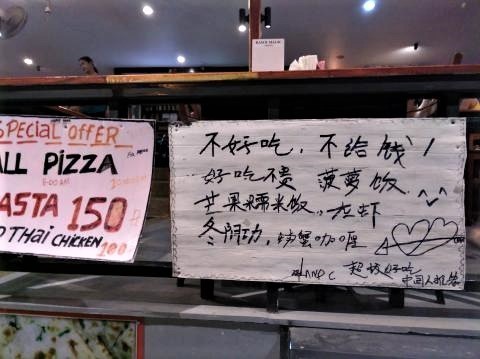 SPECIAL OFFER
ALL PIZZA
PASTA 150 ฿
THAI CHICKEN
100
不好吃,不给钱!
好吃不贵 菠萝饭
芒果糯米饭,拉虾
冬阴功,螃蟹咖喱
超好吃
中国人推荐